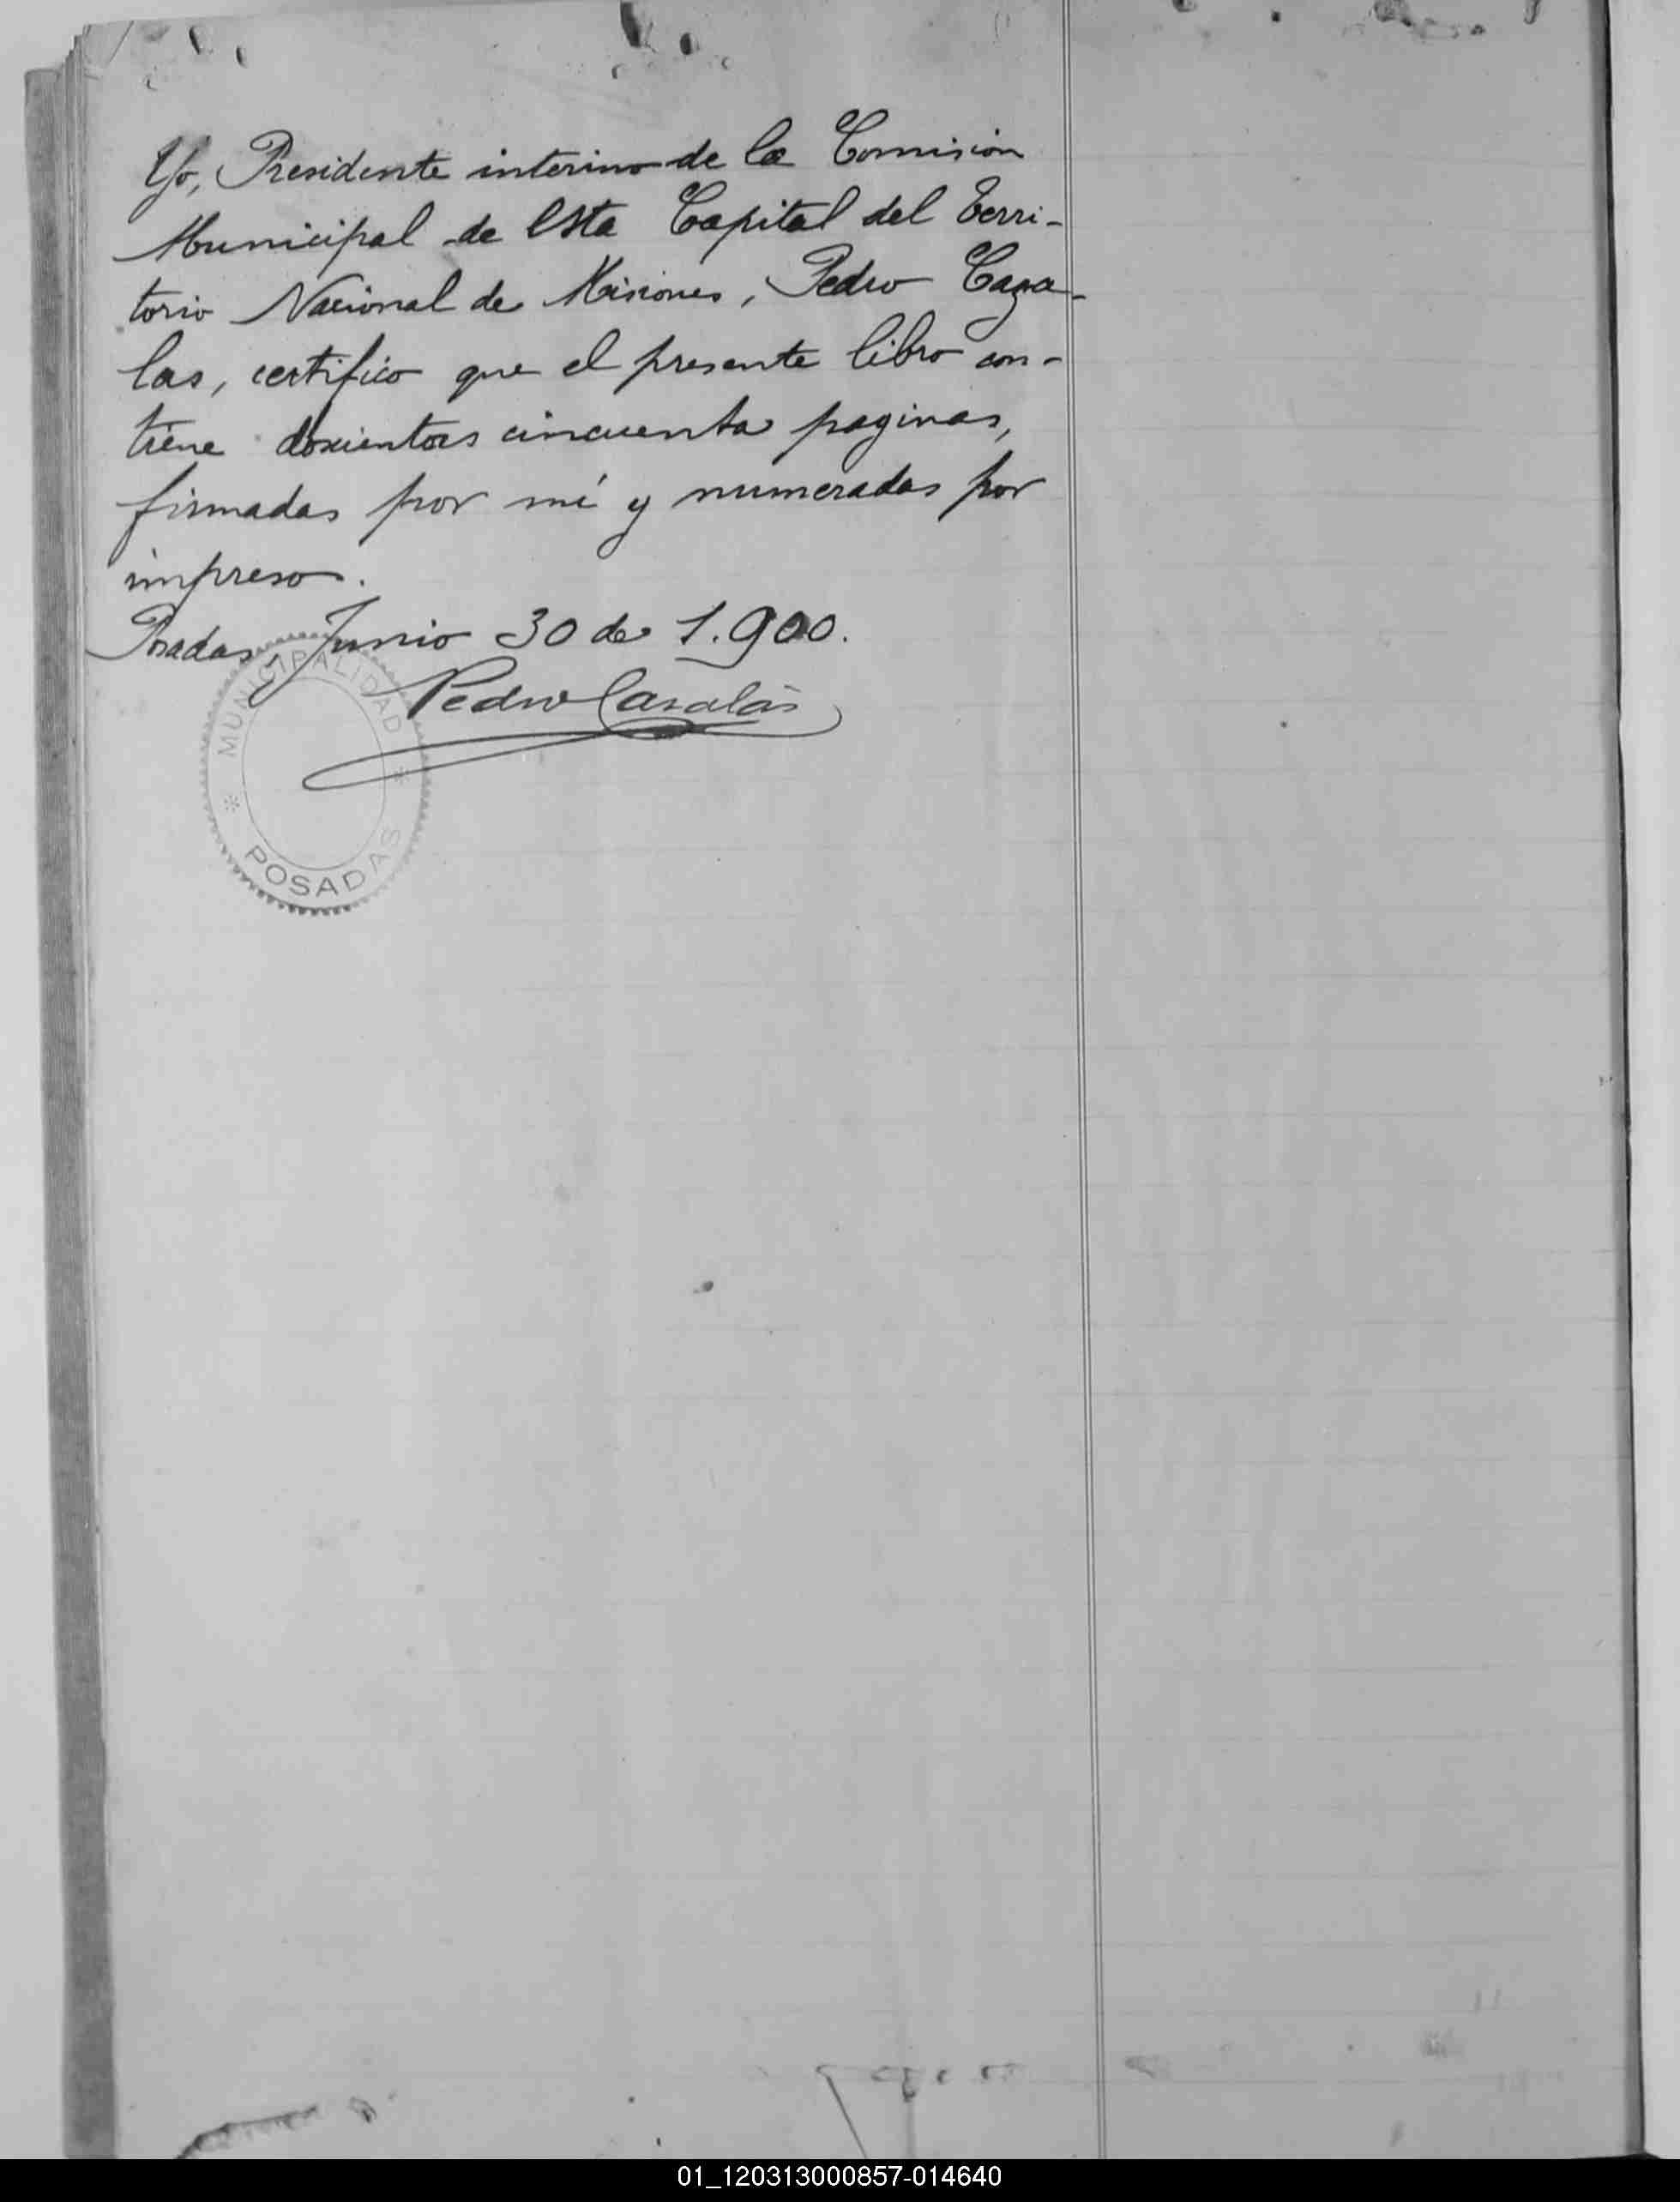 Yo, Presidente interino de la Comision
Municipal de Esta Capital del Terri-
torio Nacional de Misiones, Pedro Caza-
las, certifico que el presente libro con-
tiene doscientas cincuenta paginas,
firmadas por mí y numeradas por
impreso.
Posadas, Junio 30 de 1.900.
Pedro Casalás
MUNICIPALIDAD
* *
POSADAS
01_120313000857-014640